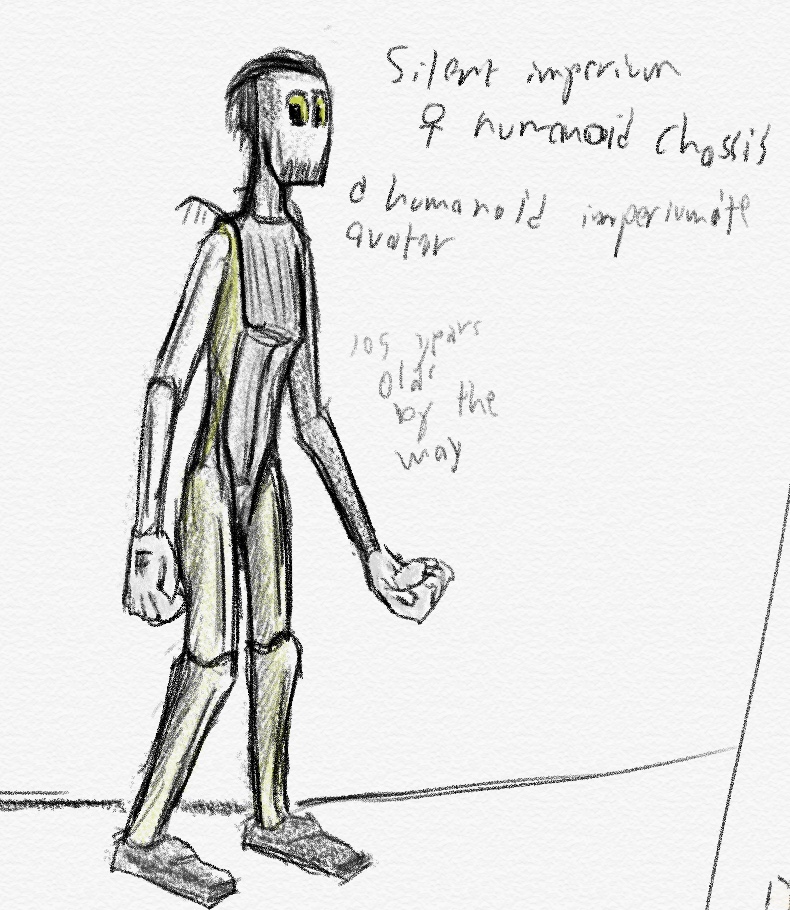 Silent imperium
♀ humanoid chassis
♂ humanoid imperiumite
avatar
105 years
old
by the
way